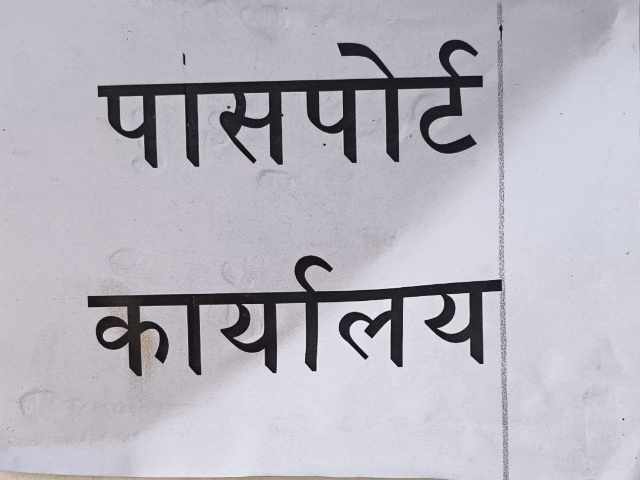 पासपोर्ट
कार्यालय